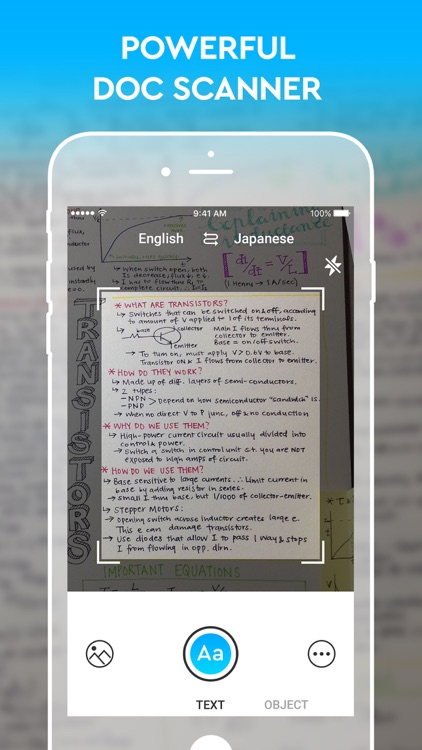 POWERFUL
DOC SCANNER
9:41 AM
100%
English
Japanese
Explaining
Inductance
dI/dt = V/L
(1 Henry → 1A/sec)
↳ When switch open, both
I to complete circuit
TRANSISTORS
* WHAT ARE TRANSISTORS?
↳ Switches that can be switched on & off, according
to amount of V applied to 1 of its terminals.
↳ base
collector
emitter
Main I flows thru from
collector to emitter.
Base = on/off switch.
↳ To turn on, must apply V > 0.6V to base.
Transistor ON & I flows from collector to emitter.
* HOW DO THEY WORK?
↳ Made up of diff. layers of semi-conductors.
↳ 2 types:
- NPN
- PNP
> Depend on how semiconductor "sandwich" is.
↳ when no direct V to P junc, off & no conduction
* WHY DO WE USE THEM?
↳ High-power current circuit usually divided into
control & power.
↳ Switch a switch in control unit s.t. you are NOT
exposed to high amps of circuit.
* HOW DO WE USE THEM?
↳ Base sensitive to large currents ∴ limit current in
base by adding resistor in series.
↳ small I thru base, but 1/1000 of collector-emitter.
↳ Stepper Motors:
↳ opening switch across inductor creates large e.
This e can damage transistors.
↳ Use diodes that allow I to pass 1 way & stops
I from flowing in opp. dirn.
IMPORTANT EQUATIONS
Aa
TEXT
OBJECT